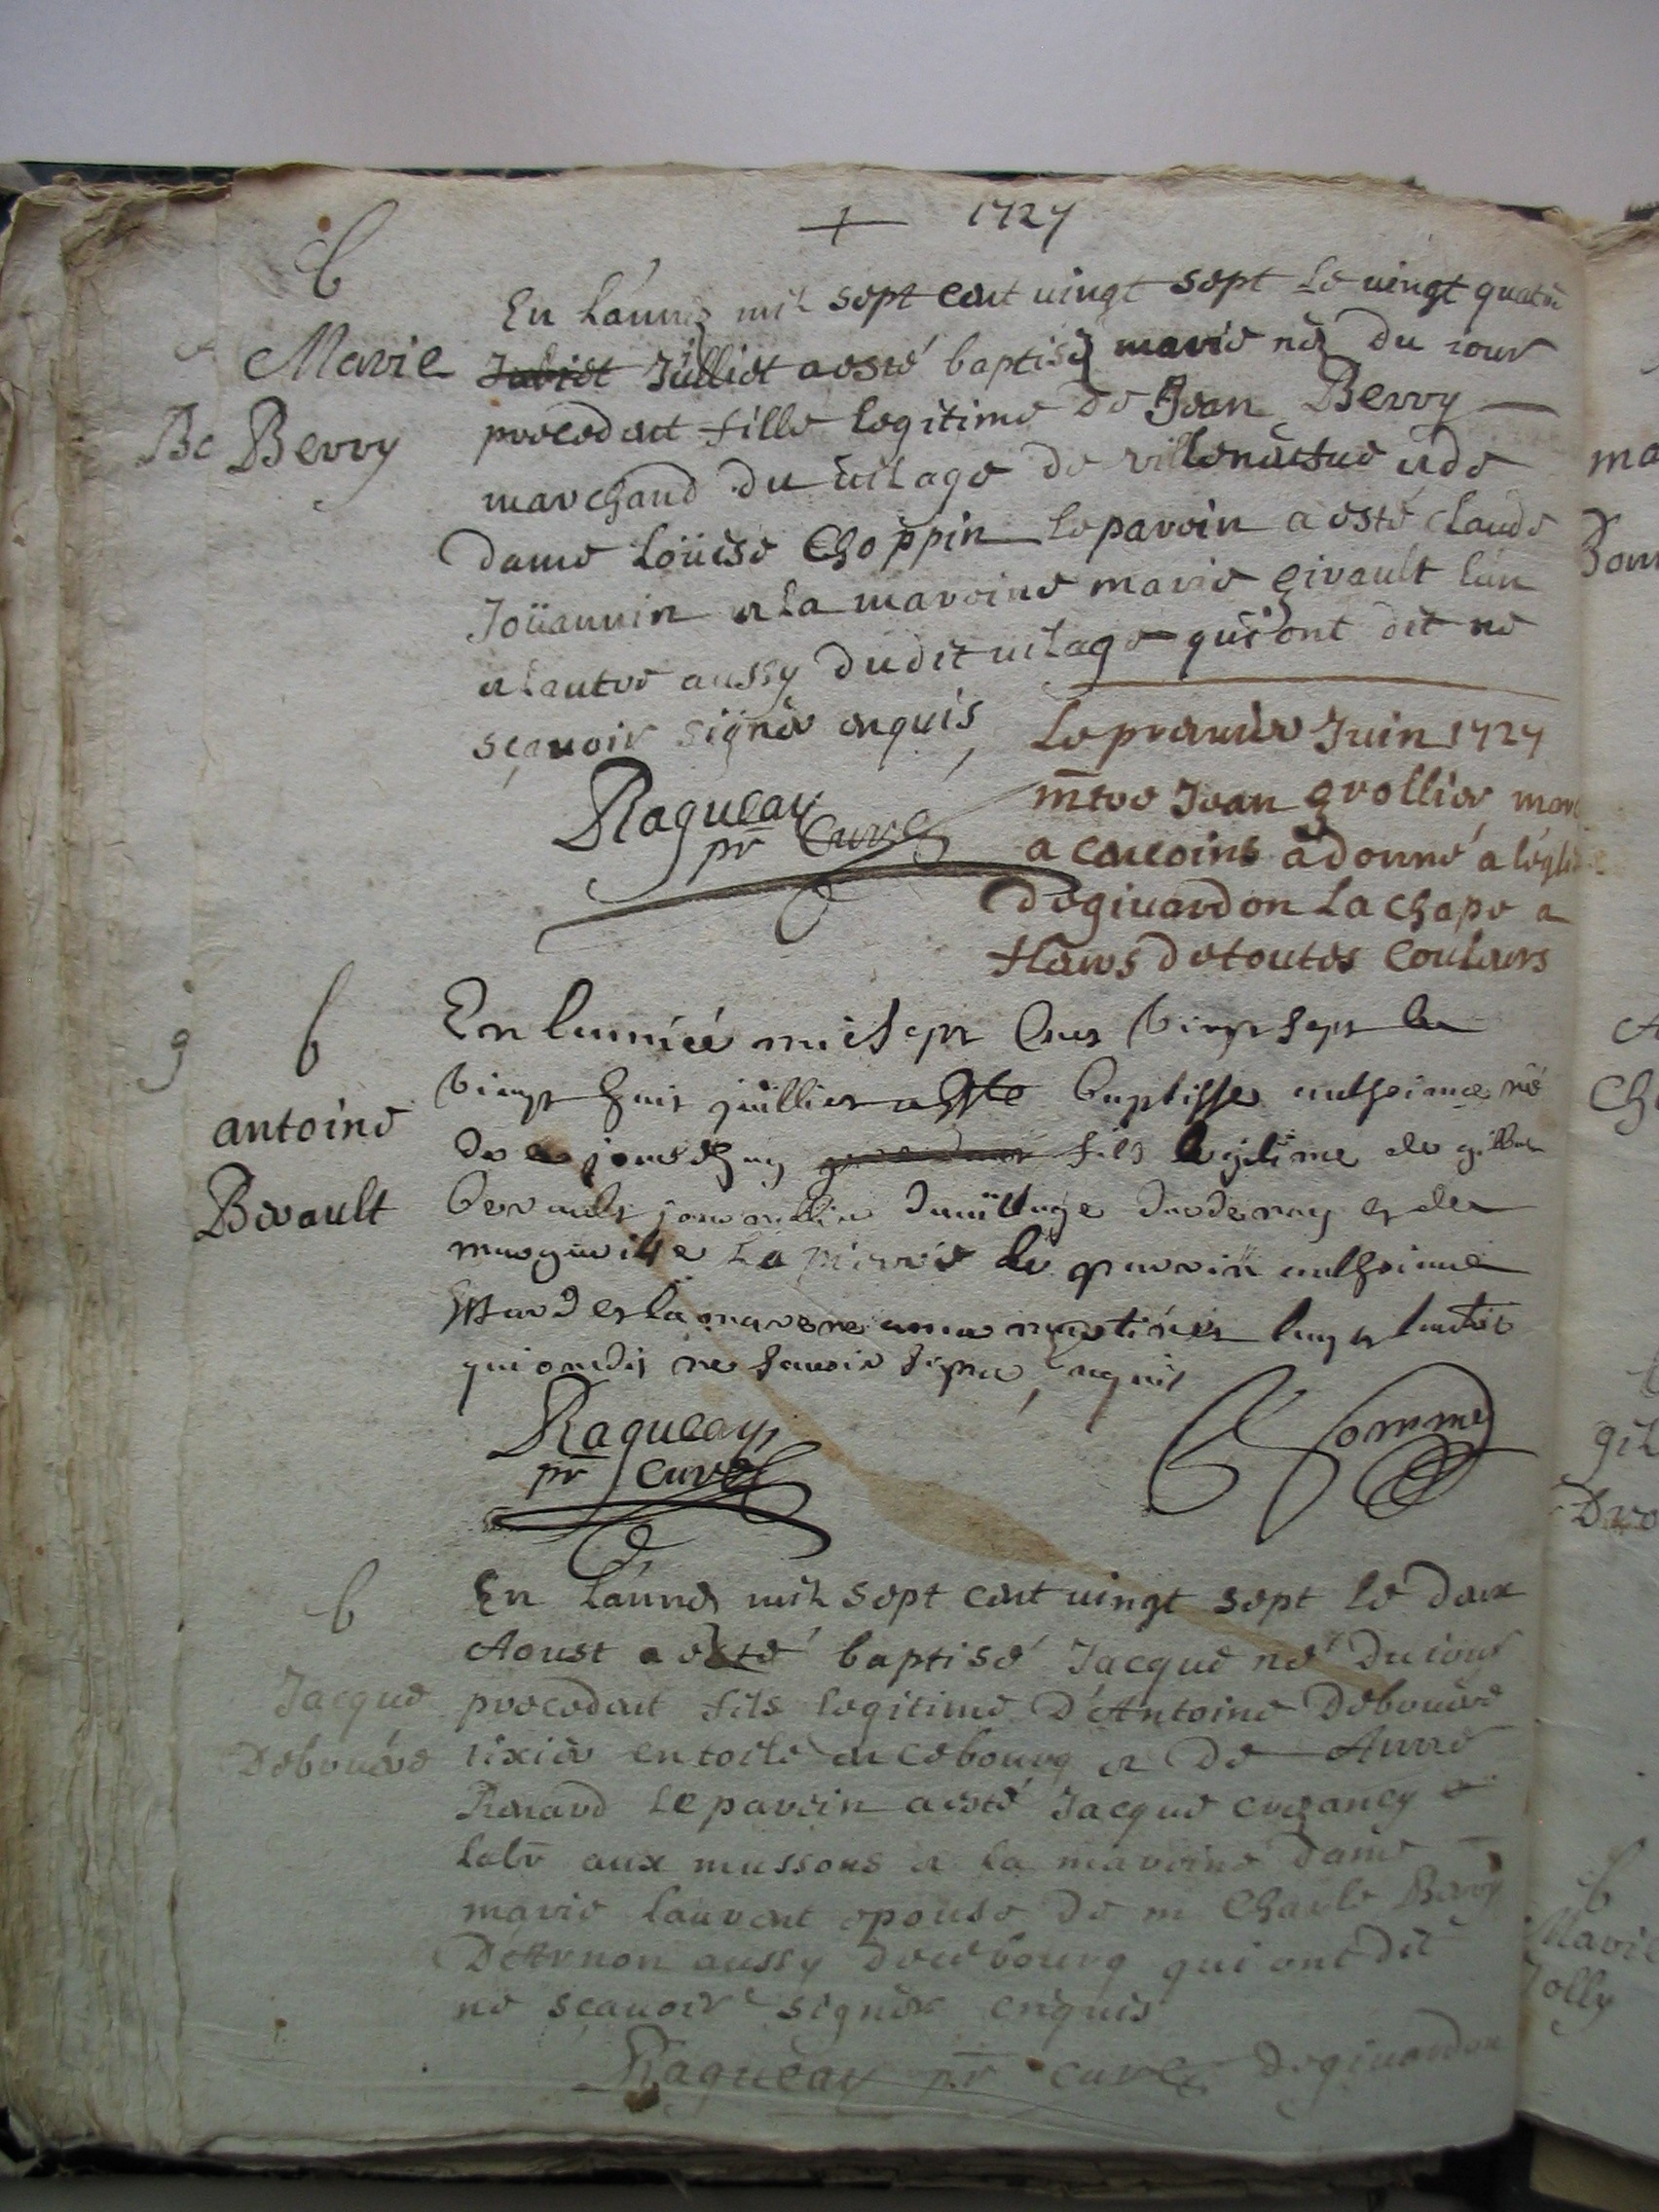 + 1727
b
Marie
Be Berry
En lánneé mil sept cent uingt sept le uingt quatre
Juliet Jüilliet a esté baptiseé marie neé du iour
precedent fille legitime de Jean Berry
marchand du uilage de villenüesue et de
dame Loüise Choppin le parein a esté claude
Joüannin et la mareine marie girault lún
et lautre aussy dudit uilage qui ont dit ne
sçauoir signer enquis
Ragueau
pr Curé
Le premier Juin 1727
mtre Jean grollier mar
a cencoins a donné a léglise
de giuardon la chape a
fleurs de toutes couleurs
b
antoine
Berault
En lanneé mil sept Cens Vingt sept le
Vingt huit juillier a este baptisse anthoinne né
de ce jourdhuy precedant fils legitime de gilbert
berault journallier du uillage de et de
marguerite La pierre le parrin anthoinne
et la marene anne lung et lautre
qui on dis ne sauoir signer enquis
Ragueau
pr curé
b
Jacque
Debruere
En lánneé mil sept cent uingt sept le deux
Aoust a esté baptisé Jacque né du iour
precedent fils legitime D'Antoine Debruere
tixier en toile en ce bourg et de Anne
Renard le parein a esté Jacque crezancy
labr aux mussons et la mareine dame
marie laurent epouse de m Charle Berry
D'Arnon aussy de ce bourg qui ont dit
ne sçauoir signer enquis
Ragueau pr curé de giuardon